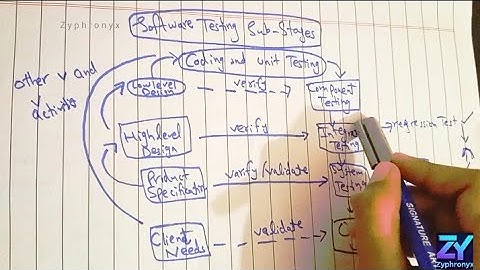 Zyphronyx
Software Testing Sub-Stages
Coding and unit Testing
other v and
v activities
Low level
Design
verify
Component
Testing
High level
Design
verify
Integra
Testing
regression Test
Product
Specification
varify/validate
System
Testing
Client
Needs
validate
SIGNATURE
ZY
Zyphronyx